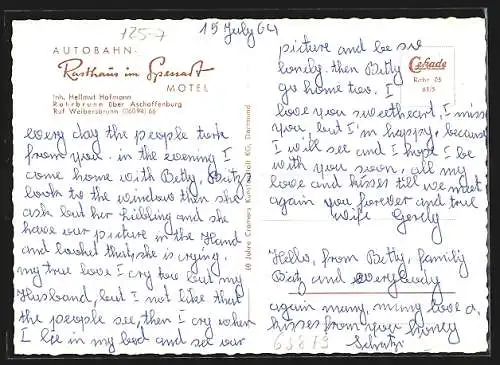 125-7
15 July 64
AUTOBAHN-
Rasthaus im Spessart
MOTEL
Inh. Hellmut Hofmann
Rohrbrunn über Aschaffenburg
Ruf Weibersbrunn (06094) 66
every day the people
from you. in the evening I
come home with Betty,
look to the window then she
ask but her and she
have our picture in the Hand
and lookd that, she is crying.
my true love I cry too but my
Husband, but I not like that
the people see, then I cry when
I lie in my bed and see our
picture and be so
lonely. then Betty
go home too. I
love you sweetheart, I miss
you, but I'm happy, because
I will see and I hope I be
with you soon, all my
love and kisses till we meet
again you forever and true
wife
Hello, from Betty, family
and everybody
again many, many love a.
kisses from you honey
Schatzi
63819
Cekade
Rohr 05
81/5
50 Jahre Cramers Kunstanstalt KG, Dortmund